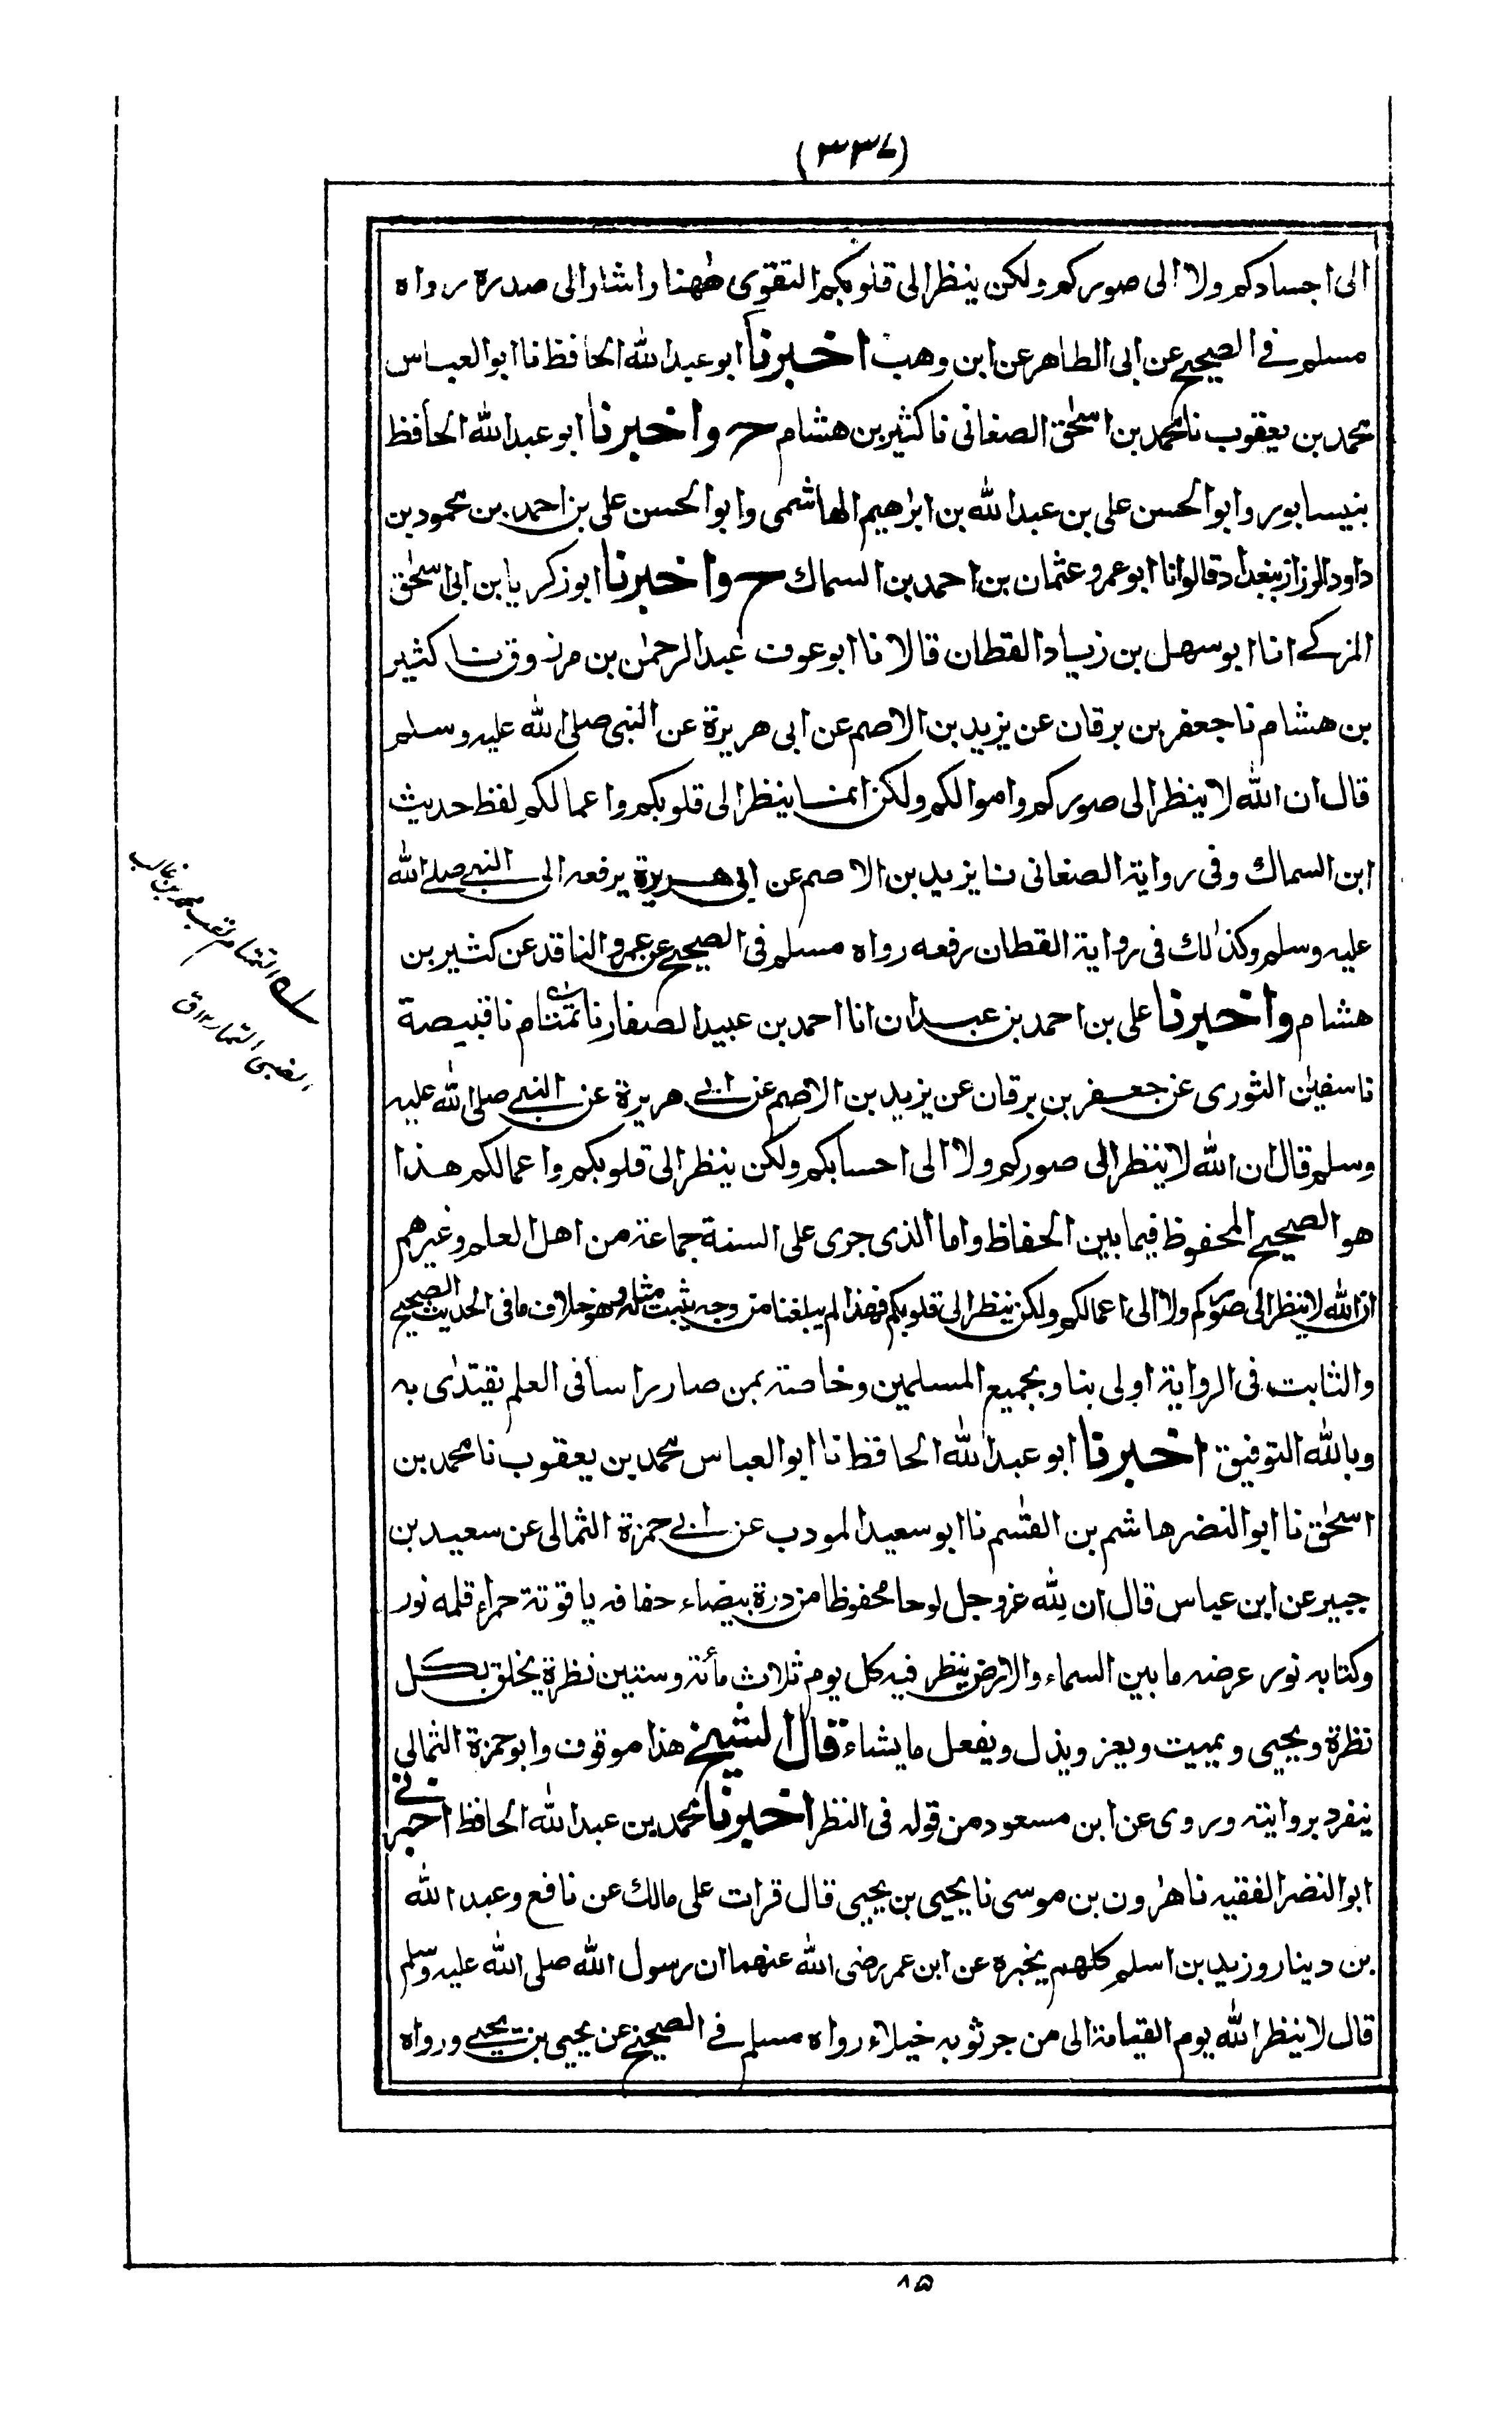 (٣٣٧)
الی اجسادکم ولا الی صورکم ولکن ینظر الی قلوبکم التقوی ھٰھنا واشار الی صدرہ رواہ
مسلم فے الصحیح عن ابی الطاھر عن ابن وھب اخبرنا ابو عبد اللہ الحافظ نا ابو العباس
محمد بن یعقوب نا محمد بن اسحٰق الصغانی نا کثیر بن ھشام ح واخبرنا ابو عبد اللہ الحافظ
بنیسابور وابو الحسن علی بن عبد اللہ بن ابراھیم الھاشمی وابو الحسن علی بن احمد بن محمود بن
داود الرزاز ببغداد قالوا نا ابو عمرو عثمان بن احمد بن السماك ح واخبرنا ابو زکریا بن ابی اسحٰق
المزکے انا ابو سھل بن زیاد القطان قالا نا ابو عوف عبد الرحمٰن بن مرزوق نا کثیر
بن ھشام نا جعفر بن برقان عن یزید بن الاصم عن ابی ھریرۃ عن النبی صلی اللہ علیہ وسلم
قال ان اللہ لا ینظر الی صورکم واموالکم ولکن انما ینظر الی قلوبکم واعمالکم لفظ حدیث
ابن السماك وفی روایۃ الصغانی نا یزید بن الاصم عن ابی ھریرۃ یرفعہ الی النبی صلے اللہ
علیہ وسلم وکذٰلك فی روایۃ القطان رفعہ رواہ مسلم فی الصحیح عن عمرو الناقد عن کثیر بن
ھشام واخبرنا علی بن احمد بن عبدان انا احمد بن عبید الصفار نا تمتام نا قبیصۃ
نا سفیٰن الثوری عن جعفر بن برقان عن یزید بن الاصم عن ابی ھریرۃ عن النبی صلی اللہ علیہ
وسلم قال ان اللہ لا ینظر الی صورکم ولا الی احسابکم ولکن ینظر الی قلوبکم واعمالکم ھذا
ھو الصحیح المحفوظ فیما بین الحفاظ واما الذی جری علی السنۃ جماعۃ من اھل العلم وغیرھم
ان اللہ لا ینظر الی صورکم ولا الی اعمالکم ولکن ینظر الی قلوبکم فھذا لم یبلغنا من وجہ یثبت مثلہ وھو خلاف ما فی الحدیث الصحیح
والثابت فی الروایۃ اولی بنا وبجمیع المسلمین وخاصۃ بمن صار راسا فی العلم یقتدٰی بہ
وباللہ التوفیق اخبرنا ابو عبد اللہ الحافظ نا ابو العباس محمد بن یعقوب نا محمد بن
اسحٰق نا ابو النضر ھاشم بن القٰسم نا ابو سعید المودب عن ابی حمزۃ الثمالی عن سعید بن
جبیر عن ابن عباس قال ان للہ عزوجل لوحا محفوظا من درۃ بیضاء حفافہ یاقوتۃ حمراء قلمہ نور
وکتابہ نور عرضہ ما بین السماء والارض ینظر فیہ کل یوم ثلاث مأئۃ وستین نظرۃ یخلق بکل
نظرۃ ویحیی ویمیت ویعز ویذل ویفعل ما یشاء قال الشیخ ھذا موقوف وابو حمزۃ الثمالی
ینفرد بروایتہ وروی عن ابن مسعود من قولہ فی النظر اخبرنا محمد بن عبد اللہ الحافظ اخبرنی
ابو النضر الفقیہ نا ھٰرون بن موسی نا یحیی بن یحیی قال قرات علی مالك عن نافع وعبد اللہ
بن دینار وزید بن اسلم کلھم یخبرہ عن ابن عمر رضی اللہ عنھما ان رسول اللہ صلی اللہ علیہ وسلم
قال لا ینظر اللہ یوم القیامۃ الی من جر ثوبہ خیلاء رواہ مسلم فے الصحیح عن یحیی بن یحیی ورواہ
لہ التمتام لقب محمد بن غالب
الضبی التمار ١٢ ق
٨٥